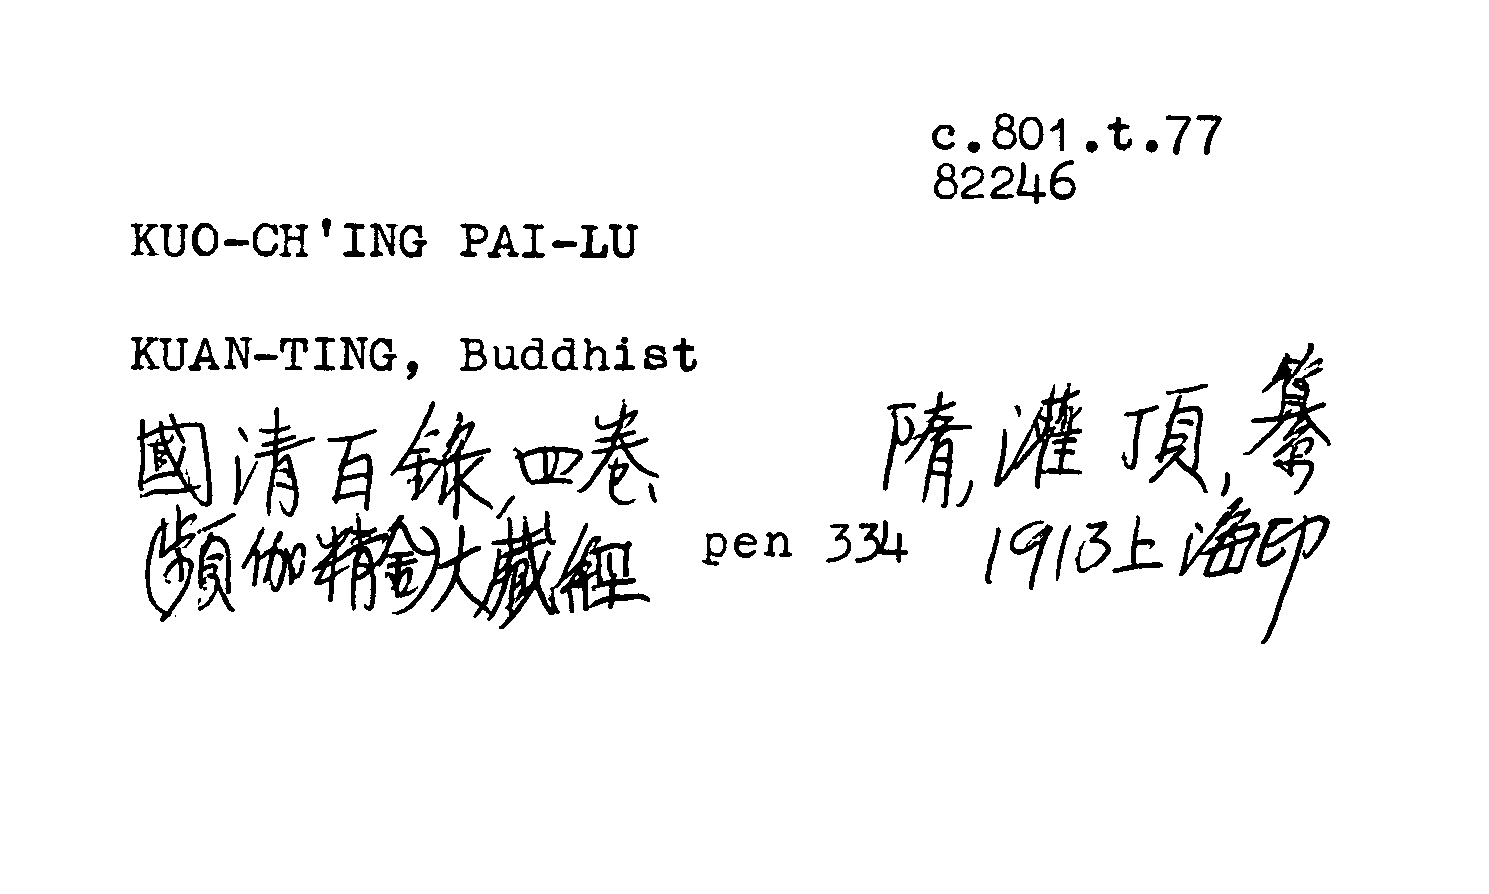 c.801.t.77
82246
KUO-CH'ING PAI-LU
KUAN-TING, Buddhist
國清百錄,四卷、 隋,灌頂,纂
(頻伽精舍)大藏經 pen 334 1913上海印